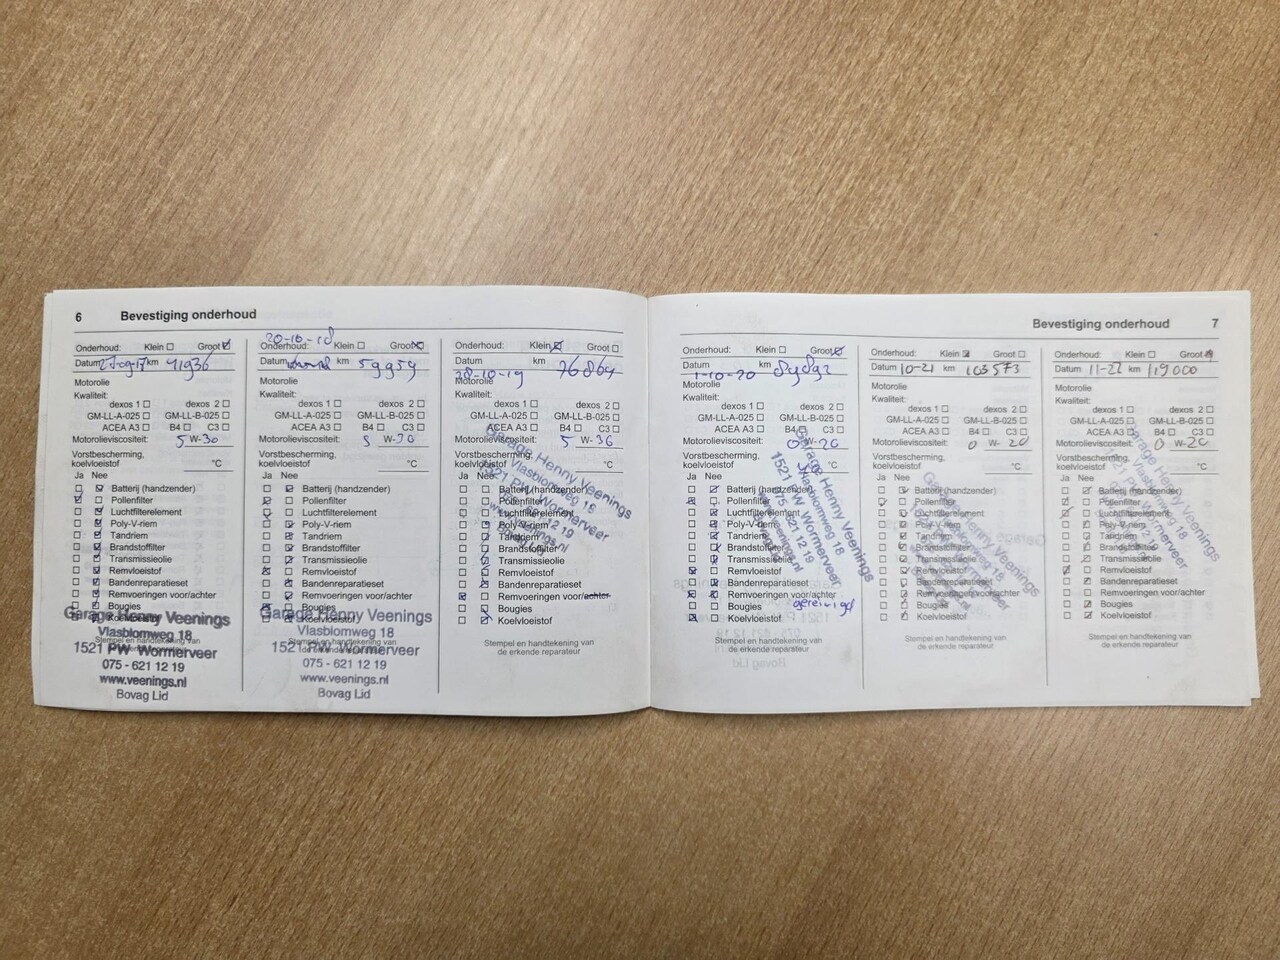 6 Bevestiging onderhoud
20-10-18
Onderhoud: Klein ☐ Groot ☒
Datum km 41936
Motorolie
Kwaliteit:
dexos 1 ☐ dexos 2 ☐
GM-LL-A-025 ☐ GM-LL-B-025 ☐
ACEA A3 ☐ B4 ☐ C3 ☐
Motorolieviscositeit: 5 W-30
Vorstbescherming,
koelvloeistof °C
Ja Nee
Batterij (handzender)
Pollenfilter
Luchtfilterelement
Poly-V-riem
Tandriem
Brandstoffilter
Transmissieolie
Remvloeistof
Bandenreparatieset
Remvoeringen voor/achter
Bougies
Koelvloeistof
Stempel en handtekening van
de erkende reparateur
Garage Henny Veenings
Vlasblomweg 18
1521 PW Wormerveer
075 - 621 12 19
www.veenings.nl
Bovag Lid
Onderhoud: Klein ☐ Groot ☒
Datum km 59959
Motorolie
Kwaliteit:
dexos 1 ☐ dexos 2 ☐
GM-LL-A-025 ☐ GM-LL-B-025 ☐
ACEA A3 ☐ B4 ☐ C3 ☐
Motorolieviscositeit: 5 W-30
Vorstbescherming,
koelvloeistof °C
Ja Nee
Batterij (handzender)
Pollenfilter
Luchtfilterelement
Poly-V-riem
Tandriem
Brandstoffilter
Transmissieolie
Remvloeistof
Bandenreparatieset
Remvoeringen voor/achter
Bougies
Koelvloeistof
Stempel en handtekening van
de erkende reparateur
Garage Henny Veenings
Vlasblomweg 18
1521 PW Wormerveer
075 - 621 12 19
www.veenings.nl
Bovag Lid
Onderhoud: Klein ☒ Groot ☐
Datum km 76864
28-10-19
Motorolie
Kwaliteit:
dexos 1 ☐ dexos 2 ☐
GM-LL-A-025 ☐ GM-LL-B-025 ☐
ACEA A3 ☐ B4 ☐ C3 ☐
Motorolieviscositeit: 5 W-30
Vorstbescherming,
koelvloeistof °C
Ja Nee
Batterij (handzender)
Pollenfilter
Luchtfilterelement
Poly-V-riem
Tandriem
Brandstoffilter
Transmissieolie
Remvloeistof
Bandenreparatieset
Remvoeringen voor/achter
Bougies
Koelvloeistof
Stempel en handtekening van
de erkende reparateur
Garage Henny Veenings
Vlasblomweg 18
1521 PW Wormerveer
Bevestiging onderhoud 7
Onderhoud: Klein ☐ Groot ☒
Datum km
1-10-20
Motorolie
Kwaliteit:
dexos 1 ☐ dexos 2 ☐
GM-LL-A-025 ☐ GM-LL-B-025 ☐
ACEA A3 ☐ B4 ☐ C3 ☐
Motorolieviscositeit: 0 W-20
Vorstbescherming,
koelvloeistof °C
Ja Nee
Batterij (handzender)
Pollenfilter
Luchtfilterelement
Poly-V-riem
Tandriem
Brandstoffilter
Transmissieolie
Remvloeistof
Bandenreparatieset
Remvoeringen voor/achter
Bougies gereinigd
Koelvloeistof
Stempel en handtekening van
de erkende reparateur
Garage Henny Veenings
Vlasblomweg 18
1521 PW Wormerveer
Onderhoud: Klein ☒ Groot ☐
Datum 10-21 km 103573
Motorolie
Kwaliteit:
dexos 1 ☐ dexos 2 ☐
GM-LL-A-025 ☐ GM-LL-B-025 ☐
ACEA A3 ☐ B4 ☐ C3 ☐
Motorolieviscositeit: 0 W-20
Vorstbescherming,
koelvloeistof °C
Ja Nee
Batterij (handzender)
Pollenfilter
Luchtfilterelement
Poly-V-riem
Tandriem
Brandstoffilter
Transmissieolie
Remvloeistof
Bandenreparatieset
Remvoeringen voor/achter
Bougies
Koelvloeistof
Stempel en handtekening van
de erkende reparateur
Garage Henny Veenings
Vlasblomweg 18
1521 PW Wormerveer
Onderhoud: Klein ☐ Groot ☒
Datum 11-22 km 119000
Motorolie
Kwaliteit:
dexos 1 ☐ dexos 2 ☐
GM-LL-A-025 ☐ GM-LL-B-025 ☐
ACEA A3 ☐ B4 ☐ C3 ☐
Motorolieviscositeit: 0 W-20
Vorstbescherming,
koelvloeistof °C
Ja Nee
Batterij (handzender)
Pollenfilter
Luchtfilterelement
Poly-V-riem
Tandriem
Brandstoffilter
Transmissieolie
Remvloeistof
Bandenreparatieset
Remvoeringen voor/achter
Bougies
Koelvloeistof
Stempel en handtekening van
de erkende reparateur
Garage Henny Veenings
Vlasblomweg 18
1521 PW Wormerveer